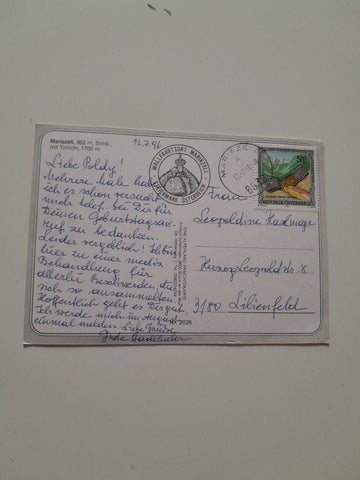 Mariazell, 862 m, Stmk.
mit Tonion, 1700 m
12.7.96
Liebe Poldy!
Mehrere Male habe
ich es schon versucht
mich telef. bei Dir für
Deinen Geburtstagsan-
ruf zu bedanken.
Leider vergeblich! Ich bin
hier zu einer mediz.
Behandlung für
allerlei Beschwerden, die
sich so ansammelten.
Hoffentlich geht es Dir gut.
Ich werde mich im August
einmal melden. Liebe Grüsse
WALLFAHRTSORT MARIAZELL
STEIERMARK ÖSTERREICH
MARIAZE
REPUBLIK ÖSTERREICH
Frau
Leopoldine
Herzog Leopoldstr. 8
3180 Lilienfeld
2026